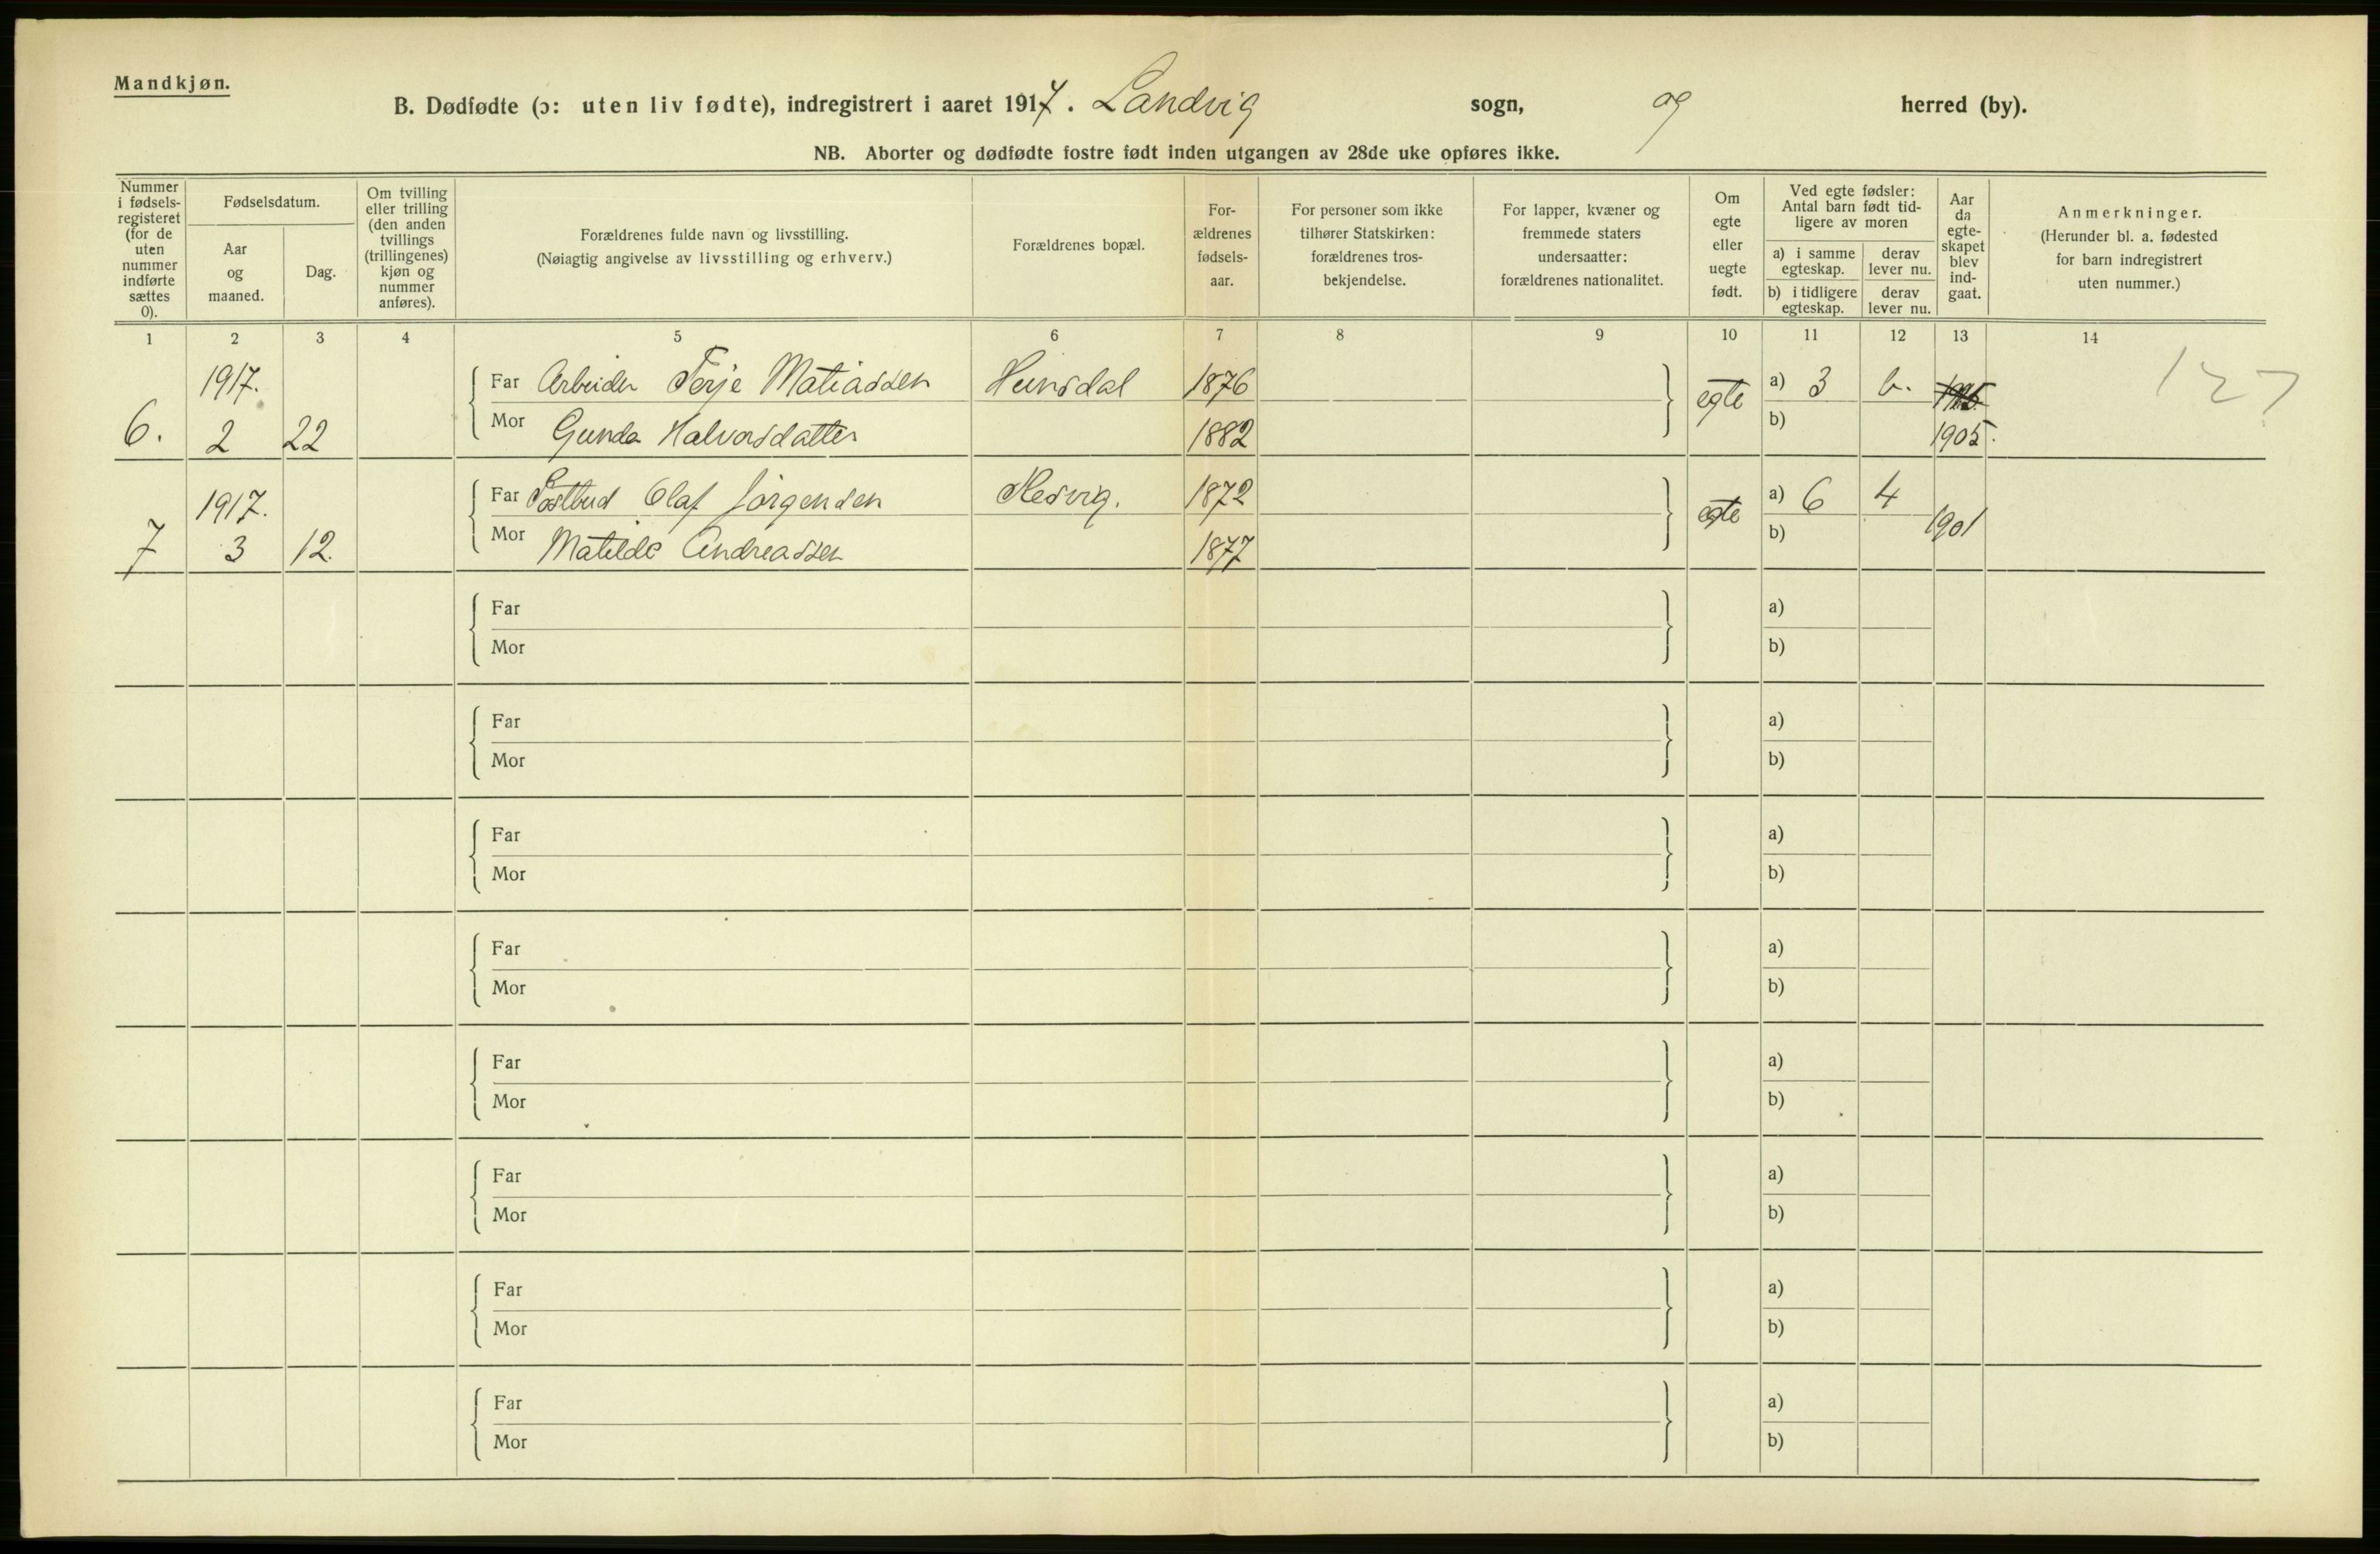 Mandkjøn.
B. Dødfødte (ɔ: uten liv fødte), indregistrert i aaret 1917. Landvig sogn, og herred (by).
NB. Aborter og dødfødte fostre født inden utgangen av 28de uke opføres ikke.
Nummer i fødsels-registeret (for de uten nummer indførte sættes 0).
Fødselsdatum.
Aar og maaned.
Dag.
Om tvilling eller trilling (den anden tvillings (trillingenes) kjøn og nummer anføres).
Forældrenes fulde navn og livsstilling.
(Nøiagtig angivelse av livsstilling og erhverv.)
Forældrenes bopæl.
For-ældrenes fødsels-aar.
For personer som ikke tilhører Statskirken: forældrenes tros-bekjendelse.
For lapper, kvæner og fremmede staters undersaatter: forældrenes nationalitet.
Om egte eller uegte født.
Ved egte fødsler: Antal barn født tid-ligere av moren
a) i samme egteskap.
derav lever nu.
b) i tidligere egteskap.
derav lever nu.
Aar da egte-skapet blev ind-gaat.
Anmerkninger.
(Herunder bl. a. fødested for barn indregistrert uten nummer.)
1 2 3 4 5 6 7 8 9 10 11 12 13 14
127
1917. Far Arbeider Terje Matiassen 1876 egte a) 3
6. 2 22 Mor Gunda Halvorsdatter 1882 b) 1905.
1917. Far Postbud Olaf Jörgensen 1872 egte a) 6 4 1901
7 3 12. Mor Matilde Andreassen 1877 b)
Far a)
Mor b)
Far a)
Mor b)
Far a)
Mor b)
Far a)
Mor b)
Far a)
Mor b)
Far a)
Mor b)
Far a)
Mor b)
Far a)
Mor b)